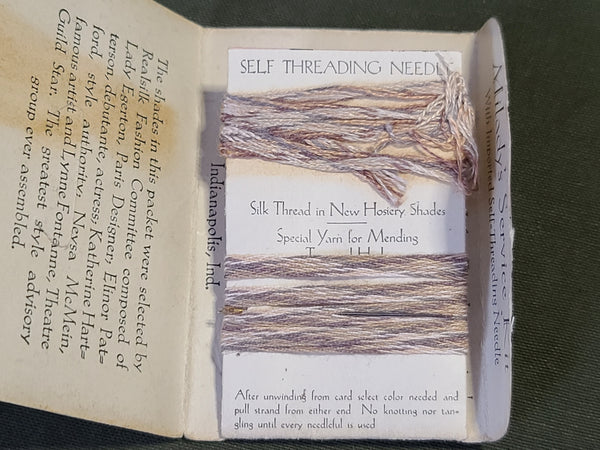 The shades in this packet were selected by
Realsilk Fashion Committee composed of
Lady Egerton, Paris Designer; Elinor Pat=
terson, debutante, actress; Katherine Hart=
ford, style authority; Neysa McMein,
famous artist and Lynne Fontanne, Theatre
Guild Star. The greatest style advisory
group ever assembled.
Indianapolis, Ind.
SELF THREADING NEEDLE
Silk Thread in New Hosiery Shades
Special Yarn for Mending
After unwinding from card select color needed and
pull strand from either end No knotting nor tan-
gling until every needleful is used
Milady's Service Kit
With Imported Self-Threading Needle